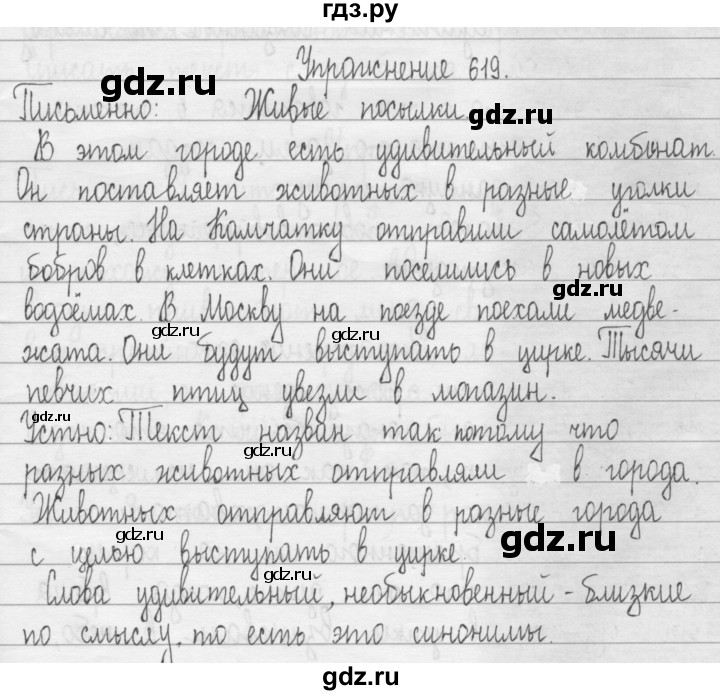 гдз.ру
Упражнение 619.
gdz.ru
gdz.ru
Письменно: Живые посылки.
В этом городе есть удивительный комбинат.
Он поставляет животных в разные уголки
страны. На Камчатку отправили самолётом
gdz.ru
бобров в клетках. Они поселились в новых
gdz.ru
водоёмах. В Москву на поезде поехали медве-
gdz.ru
gdz.ru
жата. Они будут выступать в цирке. Тысячи
певчих птиц увезли в магазин.
gdz.ru
Устно: Текст назван так потому что
gdz.ru
разных животных отправляли в города.
Животных отправляют в разные города
gdz.ru
с целью выступать в цирке.
gdz.ru
Слова удивительный, необыкновенный - близкие
gdz.ru
по смыслу, то есть это синонимы.
gdz.ru